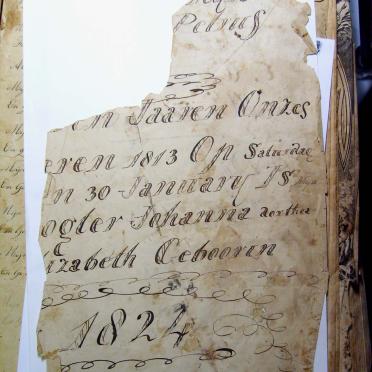 Petrus
en Jaaren Onzes
eren 1813 Op Saturdag
en 30 January Is
ogter Johanna dorthe
izabeth Geboorin
1824